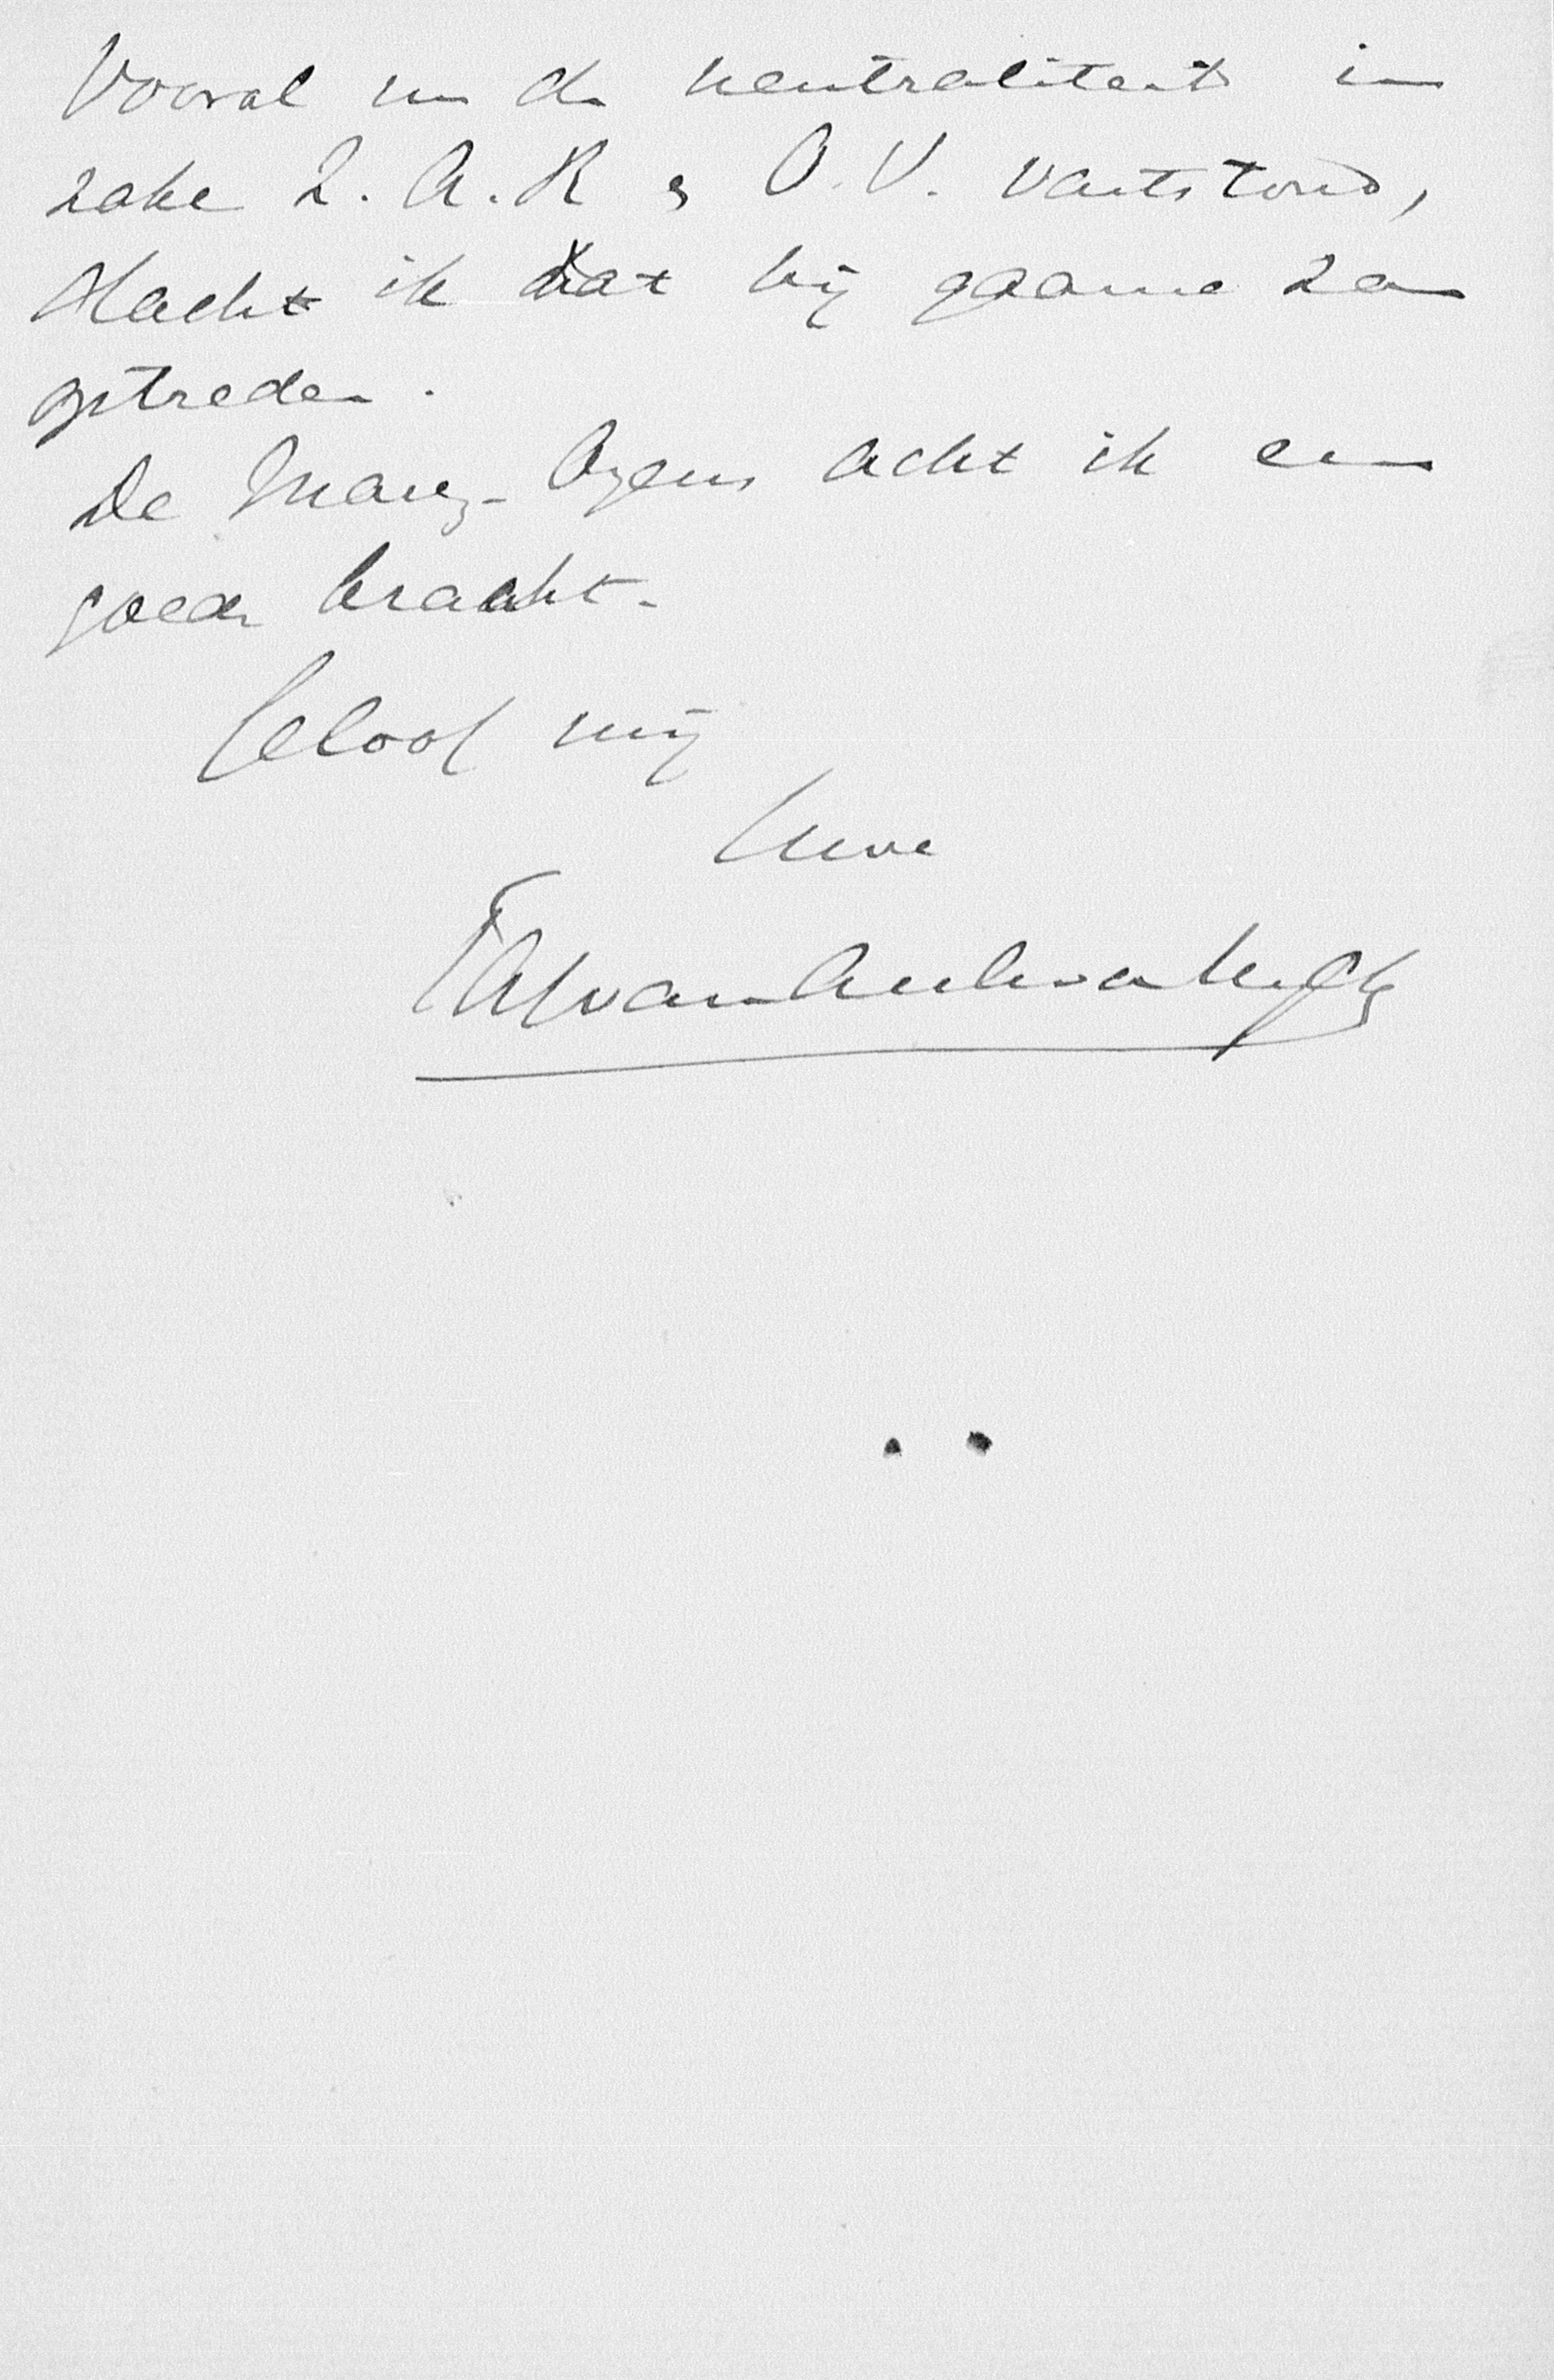 Vooral nu de neutraliteit in
zake Z. A. R & O. V. vaststond,
dacht ik dat hij gaarne zou
optreden.
De Marez-Oyens acht ik een
goede kracht.
Geloof mij
Uwe